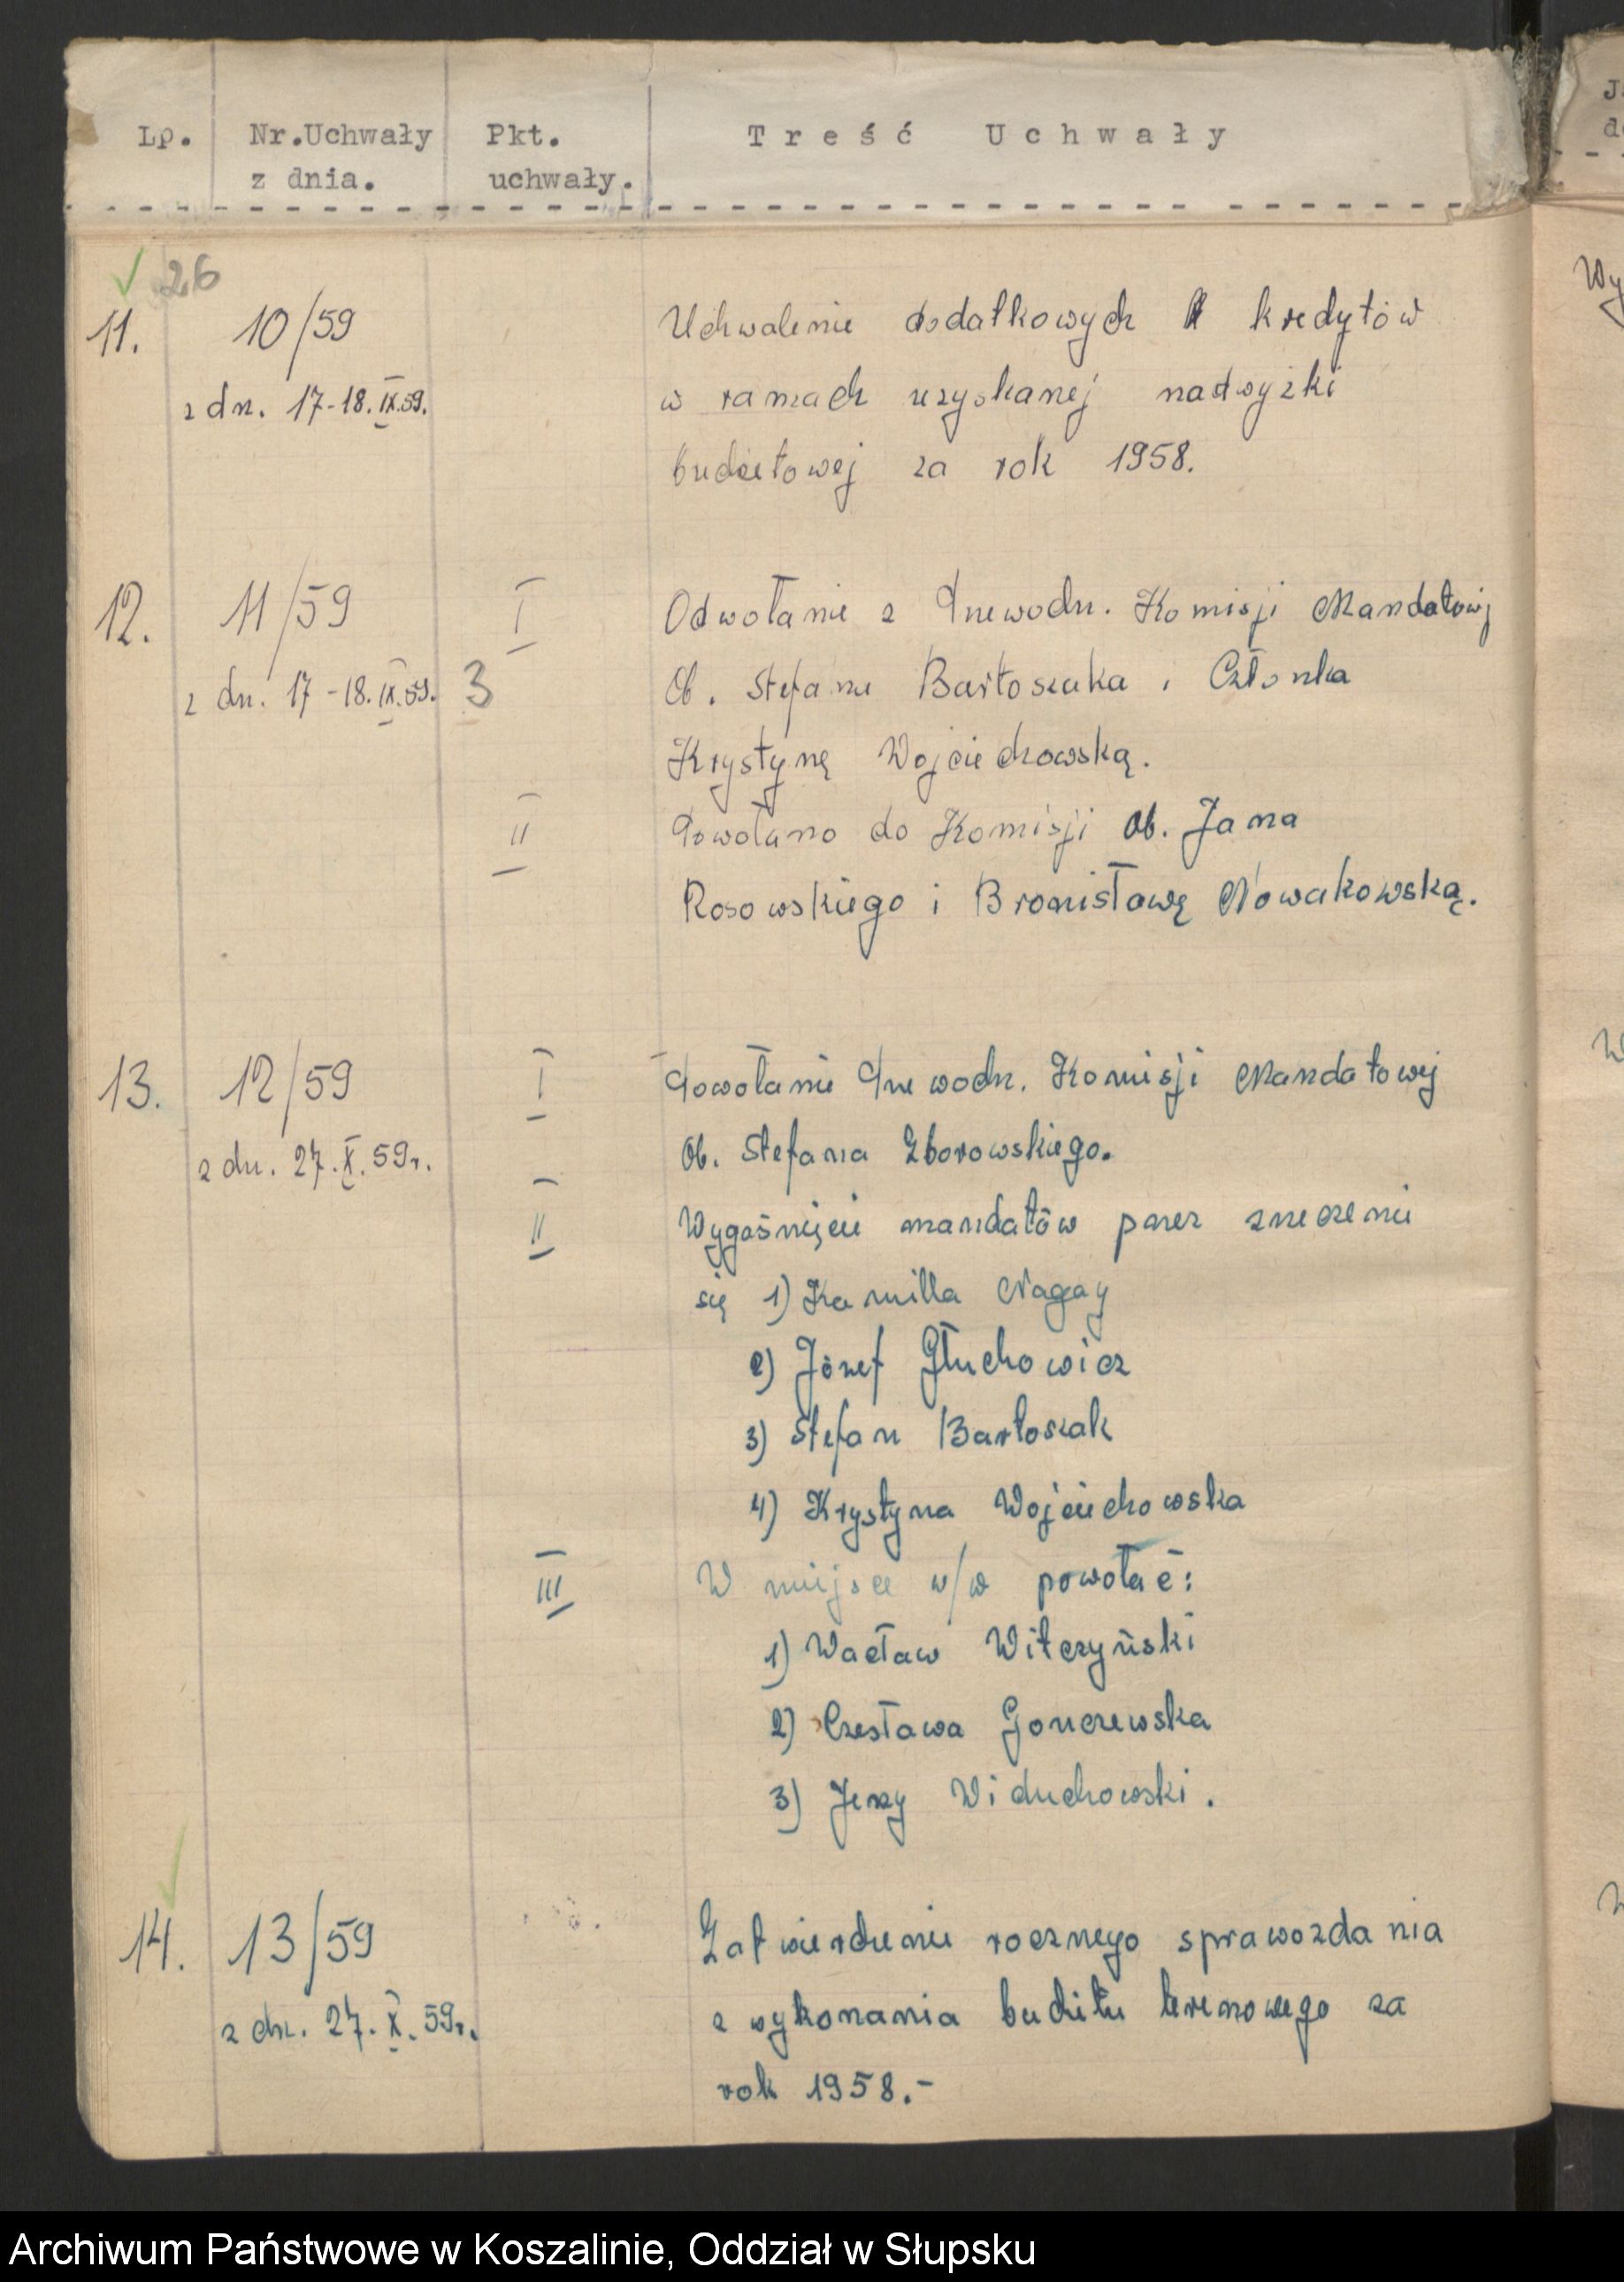 Lp. Nr.Uchwały Pkt. Treść Uchwały
z dnia. uchwały.
26
11. 10/59 Uchwalenie dodatkowych kredytów
z dn. 17-18.IX.59. w ramach uzyskanej nadwyżki
budżetowej za rok 1958.
12. 11/59 I Odwołanie z Przewodn. Komisji Mandatowej
z dn. 17-18.IX.59. 3 Ob. Stefana Bartoszaka i Członka
Krystynę Wojciechowską.
II Powołano do Komisji Ob. Jana
Rosowskiego i Bronisławę Nowakowską.
13. 12/59 I Powołanie Przewodn. Komisji Mandatowej
z dn. 27.X.59r. Ob. Stefana Zborowskiego.
II Wygaśnięcie mandatów przez zrzeczenie
się 1) Kamilla Nagay
2) Józef Głuchowicz
3) Stefan Bartoszak
4) Krystyna Wojciechowska
III W miejsce w/w powołać:
1) Wacław Witczyński
2) Czesława Gonczewska
3) Jerzy Widuchowski.
14. 13/59 Zatwierdzenie rocznego sprawozdania
z dn. 27.X.59r. z wykonania budżetu terenowego za
rok 1958.-
Wy
Archiwum Państwowe w Koszalinie, Oddział w Słupsku